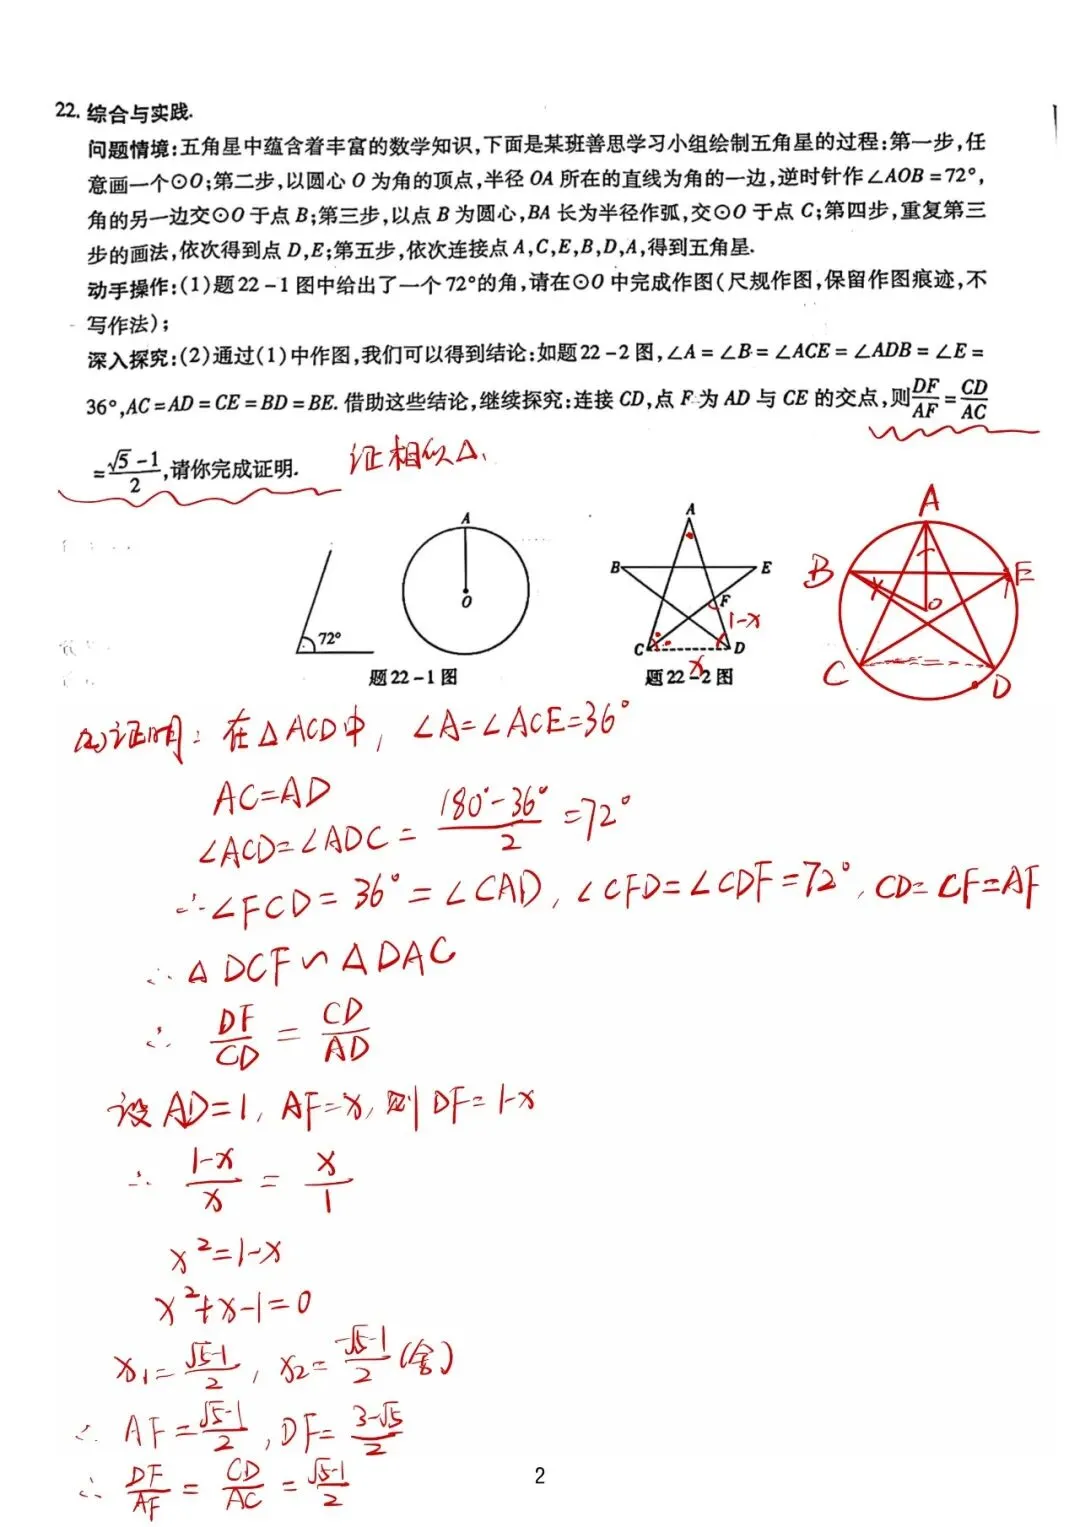 22. 综合与实践.
问题情境:五角星中蕴含着丰富的数学知识,下面是某班善思学习小组绘制五角星的过程:第一步,任
意画一个⊙O;第二步,以圆心 O 为角的顶点,半径 OA 所在的直线为角的一边,逆时针作∠AOB=72°,
角的另一边交⊙O 于点 B;第三步,以点 B 为圆心,BA 长为半径作弧,交⊙O 于点 C;第四步,重复第三
步的画法,依次得到点 D,E;第五步,依次连接点 A,C,E,B,D,A,得到五角星.
动手操作:(1)题 22-1 图中给出了一个 72°的角,请在⊙O 中完成作图(尺规作图,保留作图痕迹,不
写作法);
深入探究:(2)通过(1)中作图,我们可以得到结论:如题 22-2 图,∠A=∠B=∠ACE=∠ADB=∠E=
36°,AC=AD=CE=BD=BE. 借助这些结论,继续探究:连接 CD,点 F 为 AD 与 CE 的交点,则DF/AF=CD/AC
=(√5-1)/2,请你完成证明.
证相似△.
A
O
72°
题 22-1 图
A
B
E
F
1-x
C
D
x
题 22-2 图
A
B
E
x
O
C
D
(2)证明: 在△ACD中, ∠A=∠ACE=36°
AC=AD
∠ACD=∠ADC=(180°-36°)/2=72°
∴∠FCD=36°=∠CAD, ∠CFD=∠CDF=72°, CD=CF=AF
∴△DCF∽△DAC
∴ DF/CD = CD/AD
设 AD=1, AF=x, 则 DF=1-x
∴ (1-x)/x = x/1
x²=1-x
x²+x-1=0
x₁=(√5-1)/2, x₂=(-√5-1)/2 (舍)
∴ AF=(√5-1)/2, DF=(3-√5)/2
∴ DF/AF = CD/AC = (√5-1)/2
2